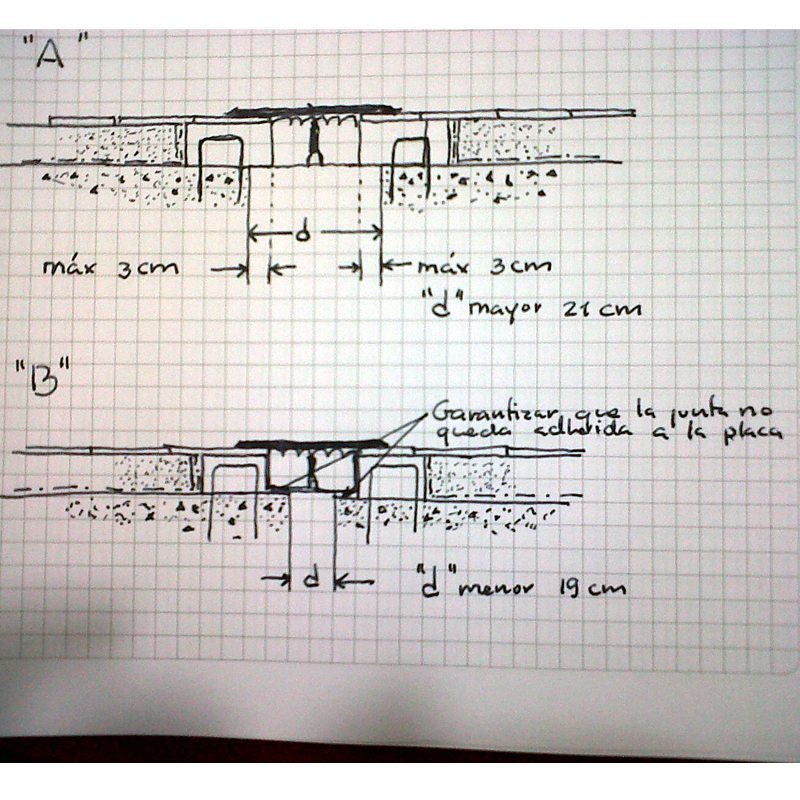 "A"
d
máx 3 cm
máx 3 cm
"d" mayor 21 cm
"B"
Garantizar que la junta no
queda adherida a la placa
d
"d" menor 19 cm